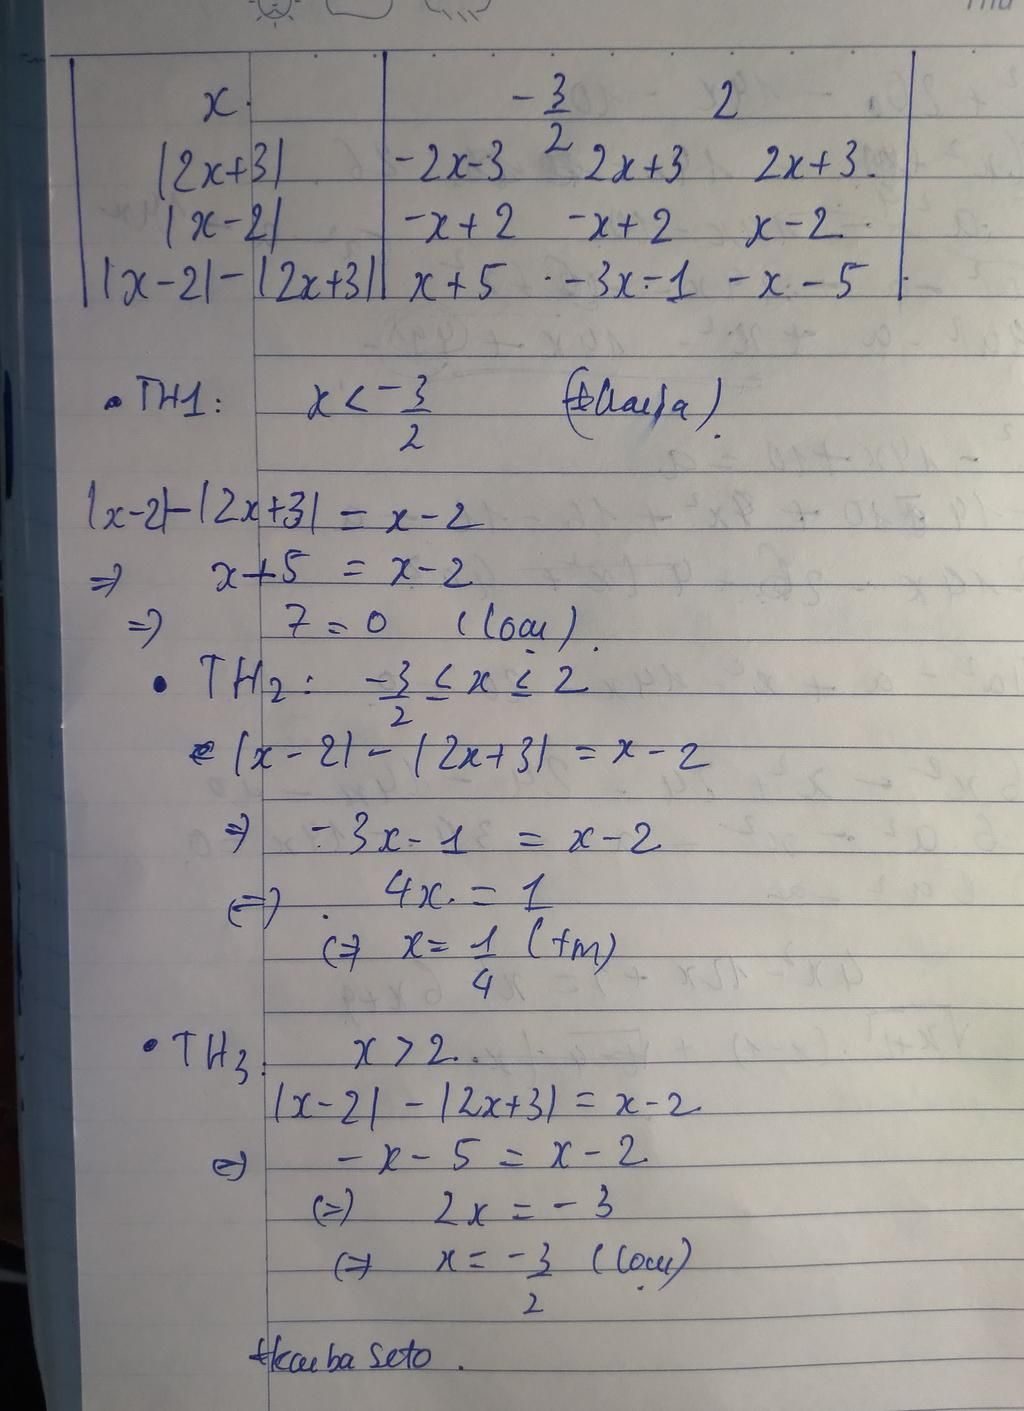 x -3/2 2
|2x+3| -2x-3 2x+3 2x+3
|x-2| -x+2 -x+2 x-2
|x-2|-|2x+3| x+5 -3x-1 -x-5
• TH1: x < -3/2
|x-2|-|2x+3| = x-2
=> x+5 = x-2
=> 7=0 (loại)
• TH2: -3/2 ≤ x ≤ 2
|x-2|-|2x+3| = x-2
=> -3x-1 = x-2
<=> 4x = 1
<=> x = 1/4 (tm)
• TH3: x > 2
|x-2|-|2x+3| = x-2
<=> -x-5 = x-2
<=> 2x = -3
<=> x = -3/2 (loại)